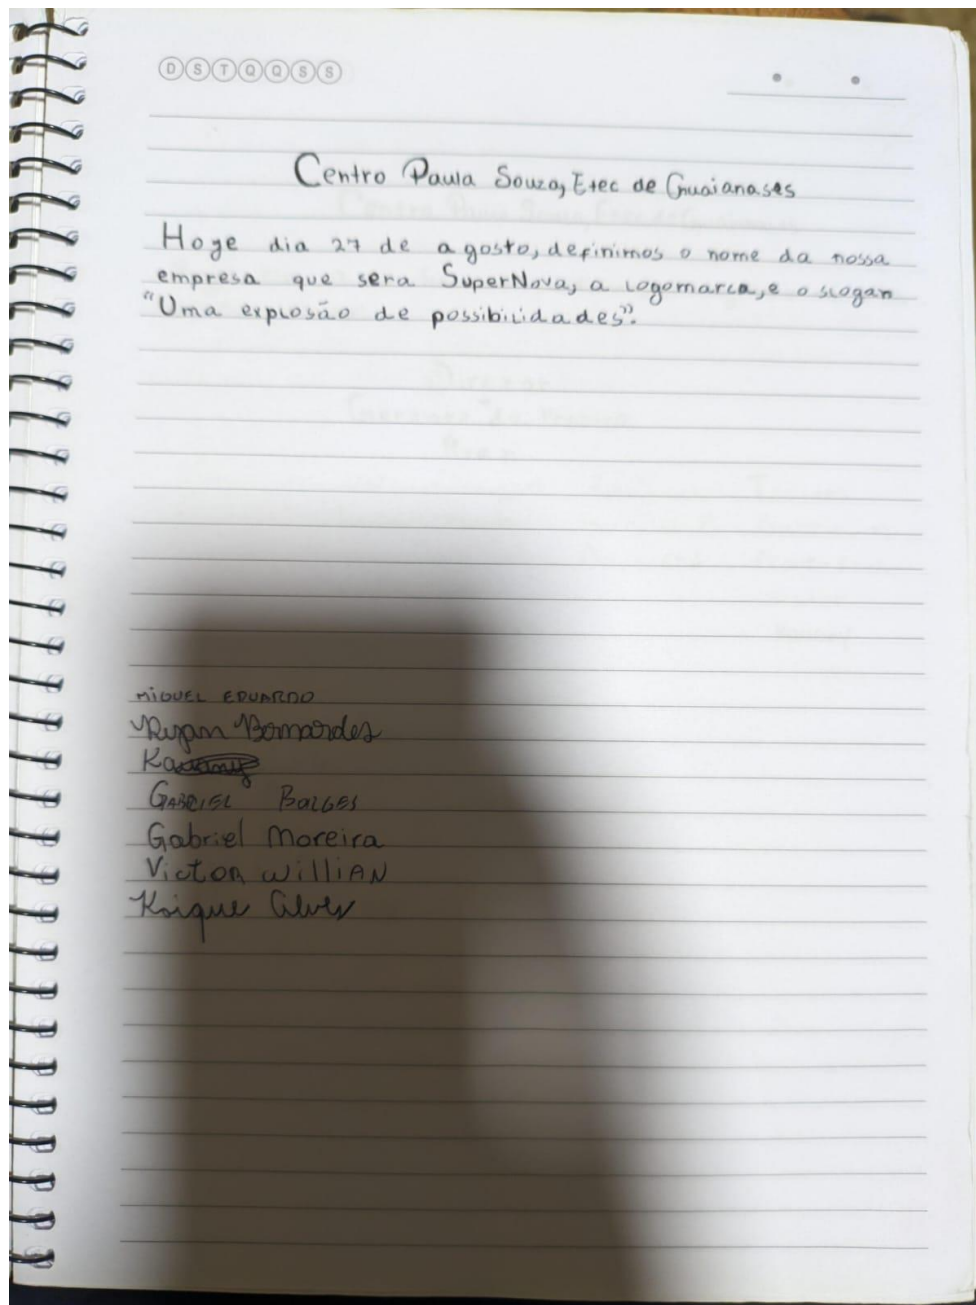 D S T Q Q S S
Centro Paula Souza, Etec de Guaianases
Hoge dia 27 de agosto, definimos o nome da nossa
empresa que sera SuperNova, a logomarca, e o slogan
"Uma explosão de possibilidades".
MIGUEL EDUARDO
Ryan Bernardes
GABRIEL BORGES
Gabriel Moreira
Victor Willian
Kaique Alves